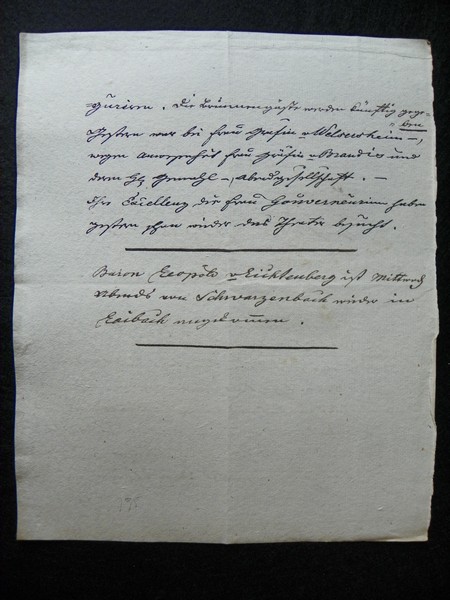 =guriren. Die Brunnengäste werden künftig gege=
=ben
Gestern war bei Frau Gräfin v Welsersheim –,
wegen Anwesenheit Frau Gräfin v Brandis und
dem H Gemahl –, Abendgesellschaft. –
Ihre Excellenz die Frau Gouverneurin haben
gestern schon wieder das Theater besucht.
Baron Leopold v Lichtenberg ist Mittwoch
Abends von Schwarzenbach wieder in
Laibach angekommen.